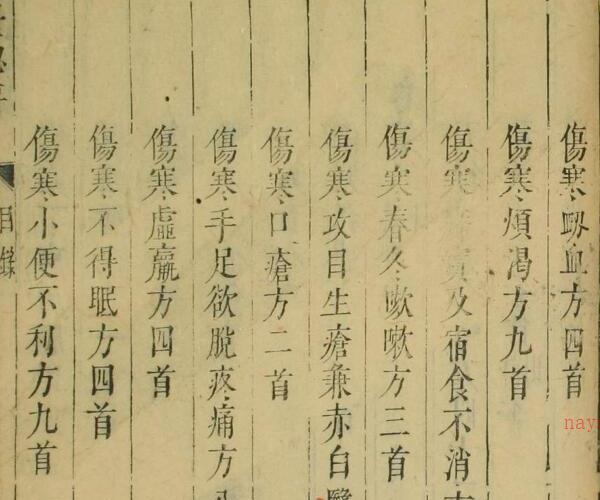 傷寒衂血方四首
傷寒煩渴方九首
傷寒及宿食不消
傷寒春冬嗽嗽方三首
傷寒攻目生瘡兼赤白
傷寒口瘡方二首
傷寒手足欲脫疼痛方
傷寒虛羸方四首
傷寒不得眠方四首
傷寒小便不利方九首
目錄
nay